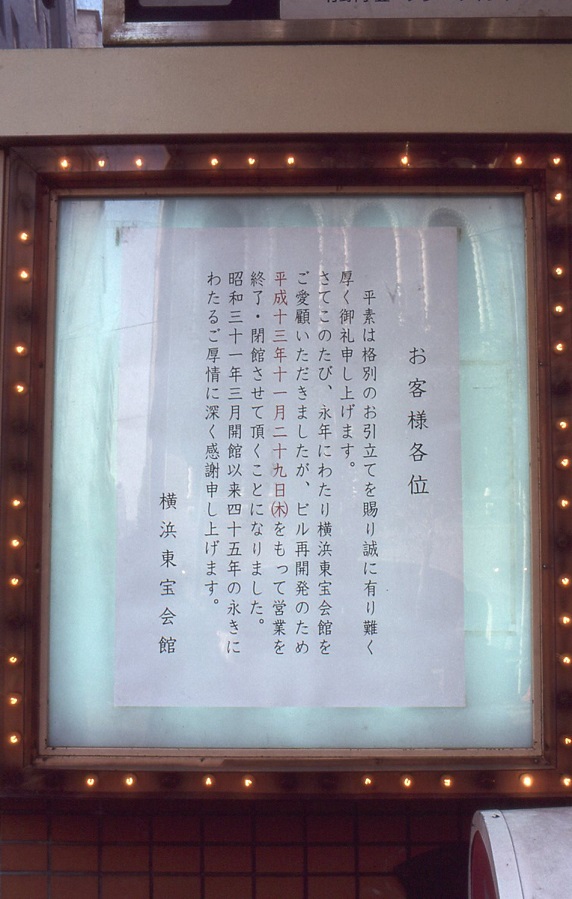 お客様各位
平素は格別のお引立てを賜り誠に有り難く
厚く御礼申し上げます。
さてこのたび、永年にわたり横浜東宝会館を
ご愛顧いただきましたが、ビル再開発のため
平成十三年十一月二十九日㈭をもって営業を
終了・閉館させて頂くことになりました。
昭和三十一年三月開館以来四十五年の永きに
わたるご厚情に深く感謝申し上げます。
横浜東宝会館